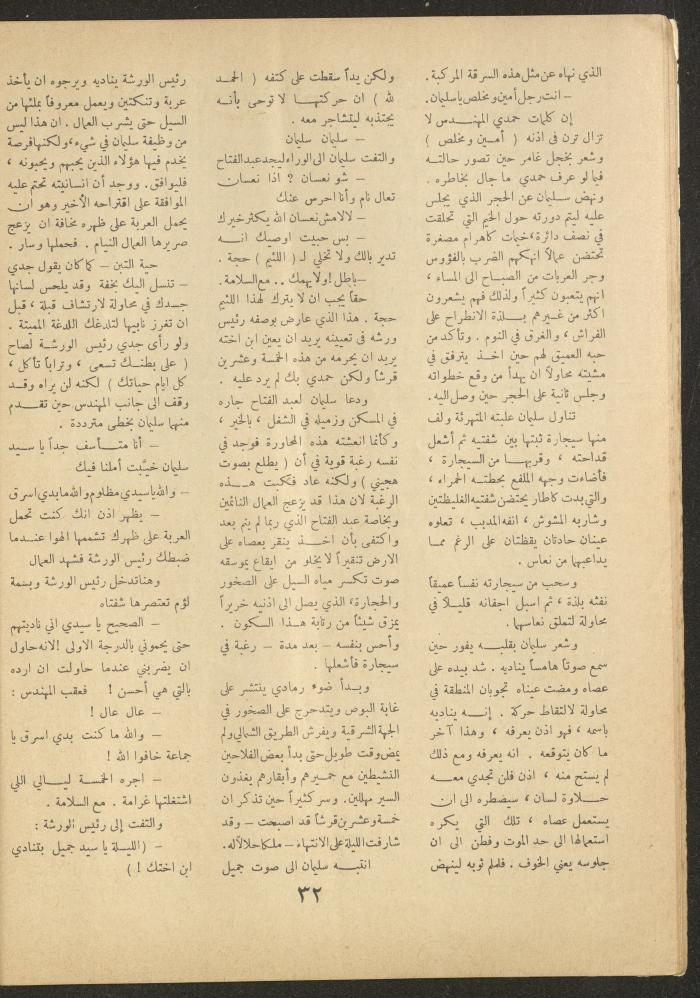 الذي نهاه عن مثل هذه السرقة المركبة.
– انت رجل أمين ومخلص يا سليمان.
إن كلمات حمدي المهندس لا
تزال ترن في اذنه ( أمين ومخلص )
وشعر بخجل غامر حين تصور حالته
فيما لو عرف حمدي ما جال بخاطره .
ونهض سليمان عن الحجر الذي يجلس
عليه ليتم دورته حول الخيم التي تحلقت
في نصف دائرة ، خيمات كاهرام مصغرة
تحتضن عمالاً انهكهم الضرب بالفؤوس
وجر العربات من الصباح الى المساء ،
انهم يتعبون كثيراً ولذلك فهم يشعرون
اكثر من غيرهم بلذة الانطراح على
الفراش ، والغرق في النوم . وتأكد من
حبه العميق لهم حين اخذ يترفق في
مشيته محاولاً ان يهدأ من وقع خطواته
وجلس ثانية على الحجر حين وصل اليه.
تناول سليمان علبته المتهرئة ولف
منها سيجارة ثبتها بين شفتيه ثم أشعل
قداحته ، وقربها من السيجارة ،
فأضاءت وجهه الملفع بحطته الحمراء ،
والتي بدت كاطار يحتضن شفتيه الغليظتين
وشاربه المشوش ، انفه المدبب ، تعلوه
عينان حادتان يقظتان على الرغم مما
يداعبهما من نعاس .
وسحب من سيجارته نفساً عميقاً
نفثه بلذة ، ثم اسبل اجفانه قليلاً في
محاولة لتملق نعاسهما .
وشعر سليمان بقلبه يفور حين
سمع صوتاً هامساً يناديه . شد بيده على
عصاه ومضت عيناه تجوبان المنطقة في
محاولة لالتقاط حركة . إنه يناديه
باسمه ، فهو اذن يعرفه ، وهذا آخر
ما كان يتوقعه . انه يعرفه ومع ذلك
لم يستح منه ، اذن فلن تجدي معه
حلاوة لسان ، سيضطره الى ان
يستعمل عصاه ، تلك التي يكره
استعمالها الى حد الموت وفطن الى ان
جلوسه يعني الخوف . فلملم ثوبه لينهض
ولكن يداً سقطت على كتفه ( الحمد
لله ) ان حركتها لا توحى بأنه
يجتذبه ليتشاجر معه .
– سليمان سليمان
والتفت سليمان الى الوراء ليجد عبد الفتاح
– شو نعسان ؟ اذا نعسان
تعال نام وأنا احرس عنك
– لا لامش نعسان الله يكثر خيرك
– بس حبيت اوصيك انه
تدير بالك ولا تخلي لـ ( اللثيم ) حجة .
– باطل ! ولا يهمك .. مع السلامة .
حقاً يجب ان لا يترك لهذا اللئيم
حجة . هذا الذي عارض بوصفه رئيس
ورشه في تعيينه يريد ان يعين ابن اخته
يريد ان يحرمه من هذه الخمسة وعشرين
قرشاً ولكن حمدي بك لم يرد عليه .
ودعا سليمان لعبد الفتاح جاره
في المسكن وزميله في الشغل ، بالخير ،
وكأنما انعشته هذه المحاورة فوجد في
نفسه رغبة قوية في أن ( يطلع بصوت
هجيني ) ولكنه عاد فكبت هذه
الرغبة لان هذا قد يزعج العمال النائمين
وبخاصة عبد الفتاح الذي ربما لم ينم بعد
واكتفى بأن اخذ ينقر بعصاه على
الارض تنقيراً لا يخلو من ايقاع يموسقه
صوت تكسر مياه السيل على الصخور
والحجارة ، الذي يصل الى اذنيه خريراً
يمزق شيئاً من رتابة هذا السكون .
وأحس بنفسه – بعد مدة – رغبة في
سيجارة فأشعلها .
وبدأ ضوء رمادي ينتشر على
غابة البوص ويتدحرج على الصخور في
الجهة الشرقية ويفرش الطريق الشمالي ولم
يمض وقت طويل حتى بدأ بعض الفلاحين
النشيطين مع حميرهم وأبقارهم يغذون
السير مهللين. وسر كثيراً حين تذكر ان
خمسة وعشرين قرشاً قد اصبحت – وقد
شارفت الليلة على الانتهاء – ملكا حلالاً له.
انتبه سليمان الى صوت جميل
رئيس الورشة يناديه ويرجوه ان يأخذ
عربة وتنكتين ويعمل معروفاً بملئها من
السيل حتى يشرب العمال . ان هذا ليس
من وظيفة سليمان في شيء ، ولكنها فرصة
يخدم فيها هؤلاء الذين يحبهم ويحبونه ،
فليوافق. ووجد أن انسانيته تحتم عليه
الموافقة على اقتراحه الأخير وهو ان
يحمل العربة على ظهره مخافة ان يزعج
صريرها العمال النيام . فحملها وسار .
حية التبن – كما كان يقول جدي
– تنسل اليك بخفة وقد يلحس لسانها
جسدك في محاولة لارتشاف قبلة ، قبل
ان تغرز نابيها لتلدغك اللدغة المميتة .
ولو رأى جدي رئيس الورشة لصاح
( على بطنك تسعى ، وتراباً تأكل ،
كل ايام حياتك ) لكنه لن يراه وقد
وقف الى جانب المهندس حين تقدم
منهما سليمان بخطى مترددة .
– أنا متأسف جداً يا سيد
سليمان خيّبت أملنا فيك
– والله يا سيدي مظلوم والله ما بدي اسرق
– يظهر اذن انك كنت تحمل
العربة على ظهرك تشممها الهوا عندما
ضبطك رئيس الورشة فشهد العمال
وهنا تدخل رئيس الورشة وبسمة
لؤم تعتصرها شفتاه
– الصحيح يا سيدي اني ناديتهم
حتى يحموني بالدرجة الاولى ! لانه حاول
ان يضربني عندما حاولت ان ارده
بالتي هي أحسن ! فعقب المهندس :
– عال عال !
– والله ما كنت بدي اسرق يا
جماعة خافوا الله !
– اجره الخمسة ليالي اللي
اشتغلتها غرامة . مع السلامة .
والتفت إلى رئيس الورشة :
– ( الليلة يا سيد جميل بتنادي
ابن اختك ! )
٣٢